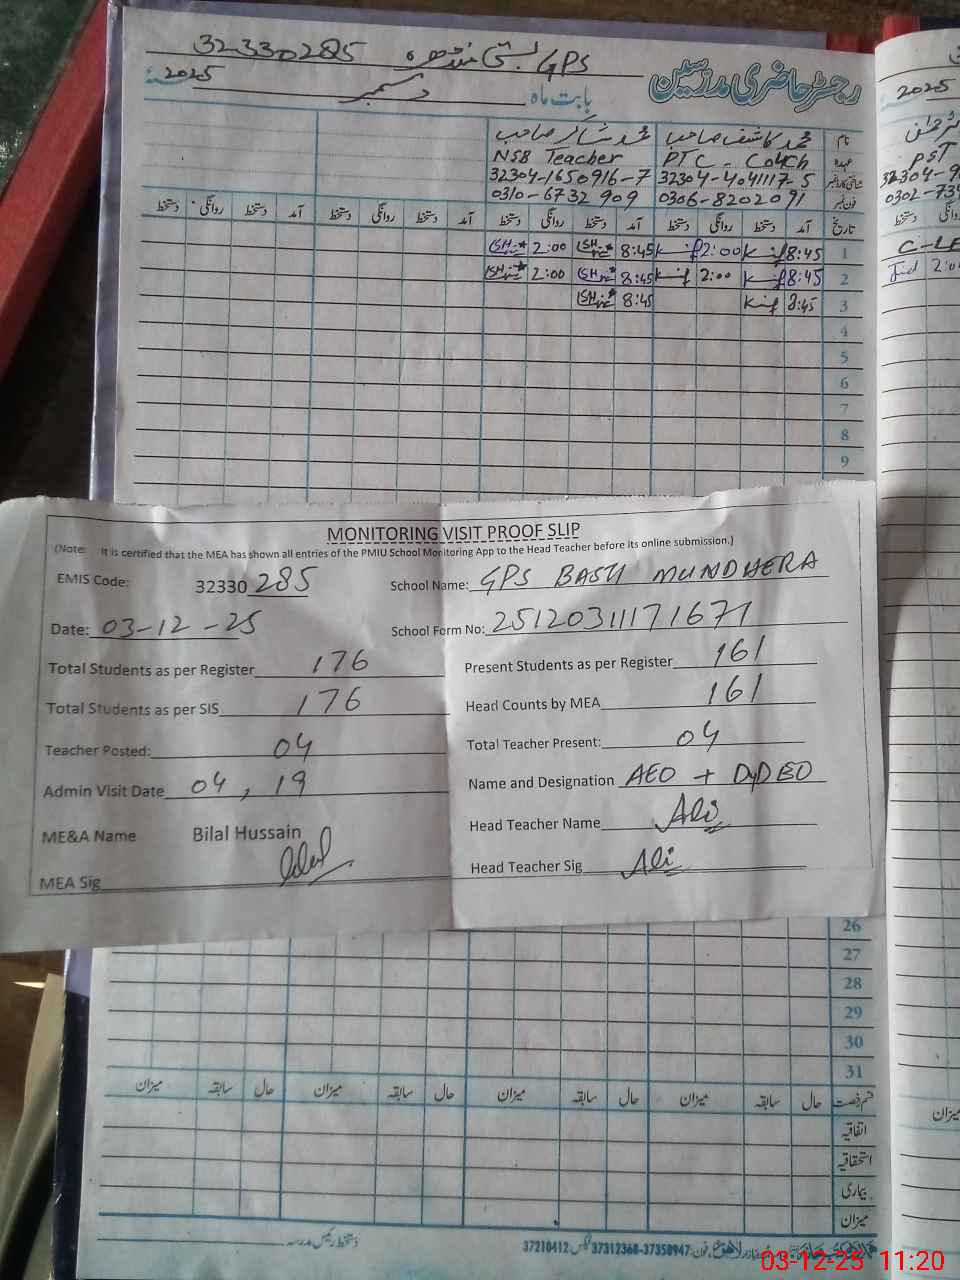 32330285 بستی منڈھیرہ GPS
رجسٹر حاضری مدرسین
بابت ماہ دسمبر 2025ء
نام محمد کاشف صاحب محمد شاکر صاحب
عہدہ PTC - Coach NSB Teacher
32304-4041117-5 32304-1650916-7
فون نمبر 0306-8202091 0310-6732909
تاریخ آمد دستخط روانگی دستخط آمد دستخط روانگی دستخط آمد دستخط روانگی دستخط آمد دستخط روانگی دستخط
1 8:45 2:00 8:45 2:00
2 8:45 2:00 8:45 2:00
3 8:45 8:45
4
5
6
7
8
9
2025
PST
32304-9
0302-734
دستخط
C-LE
2:0
MONITORING VISIT PROOF SLIP
(Note: It is certified that the MEA has shown all entries of the PMIU School Monitoring App to the Head Teacher before its online submission.)
EMIS Code: 32330 285 School Name: GPS BASTI MUNDHERA
Date: 03-12-25 School Form No: 25120311171671
Total Students as per Register 176 Present Students as per Register 161
Total Students as per SIS 176 Head Counts by MEA 161
Teacher Posted: 04 Total Teacher Present: 04
Admin Visit Date 04, 19 Name and Designation AEO + DyDEO
ME&A Name Bilal Hussain Head Teacher Name Ali
MEA Sig Head Teacher Sig Ali
26
27
28
29
30
31
قسم رخصت حال سابقہ میزان حال سابقہ میزان حال سابقہ میزان حال سابقہ میزان
اتفاقیہ
استحقاقیہ
بیماری
میزان
میزان
دستخط رئیس مدرسہ
لاہور فون: 37350947-37312368 فیکس 37210412
03-12-25 11:20